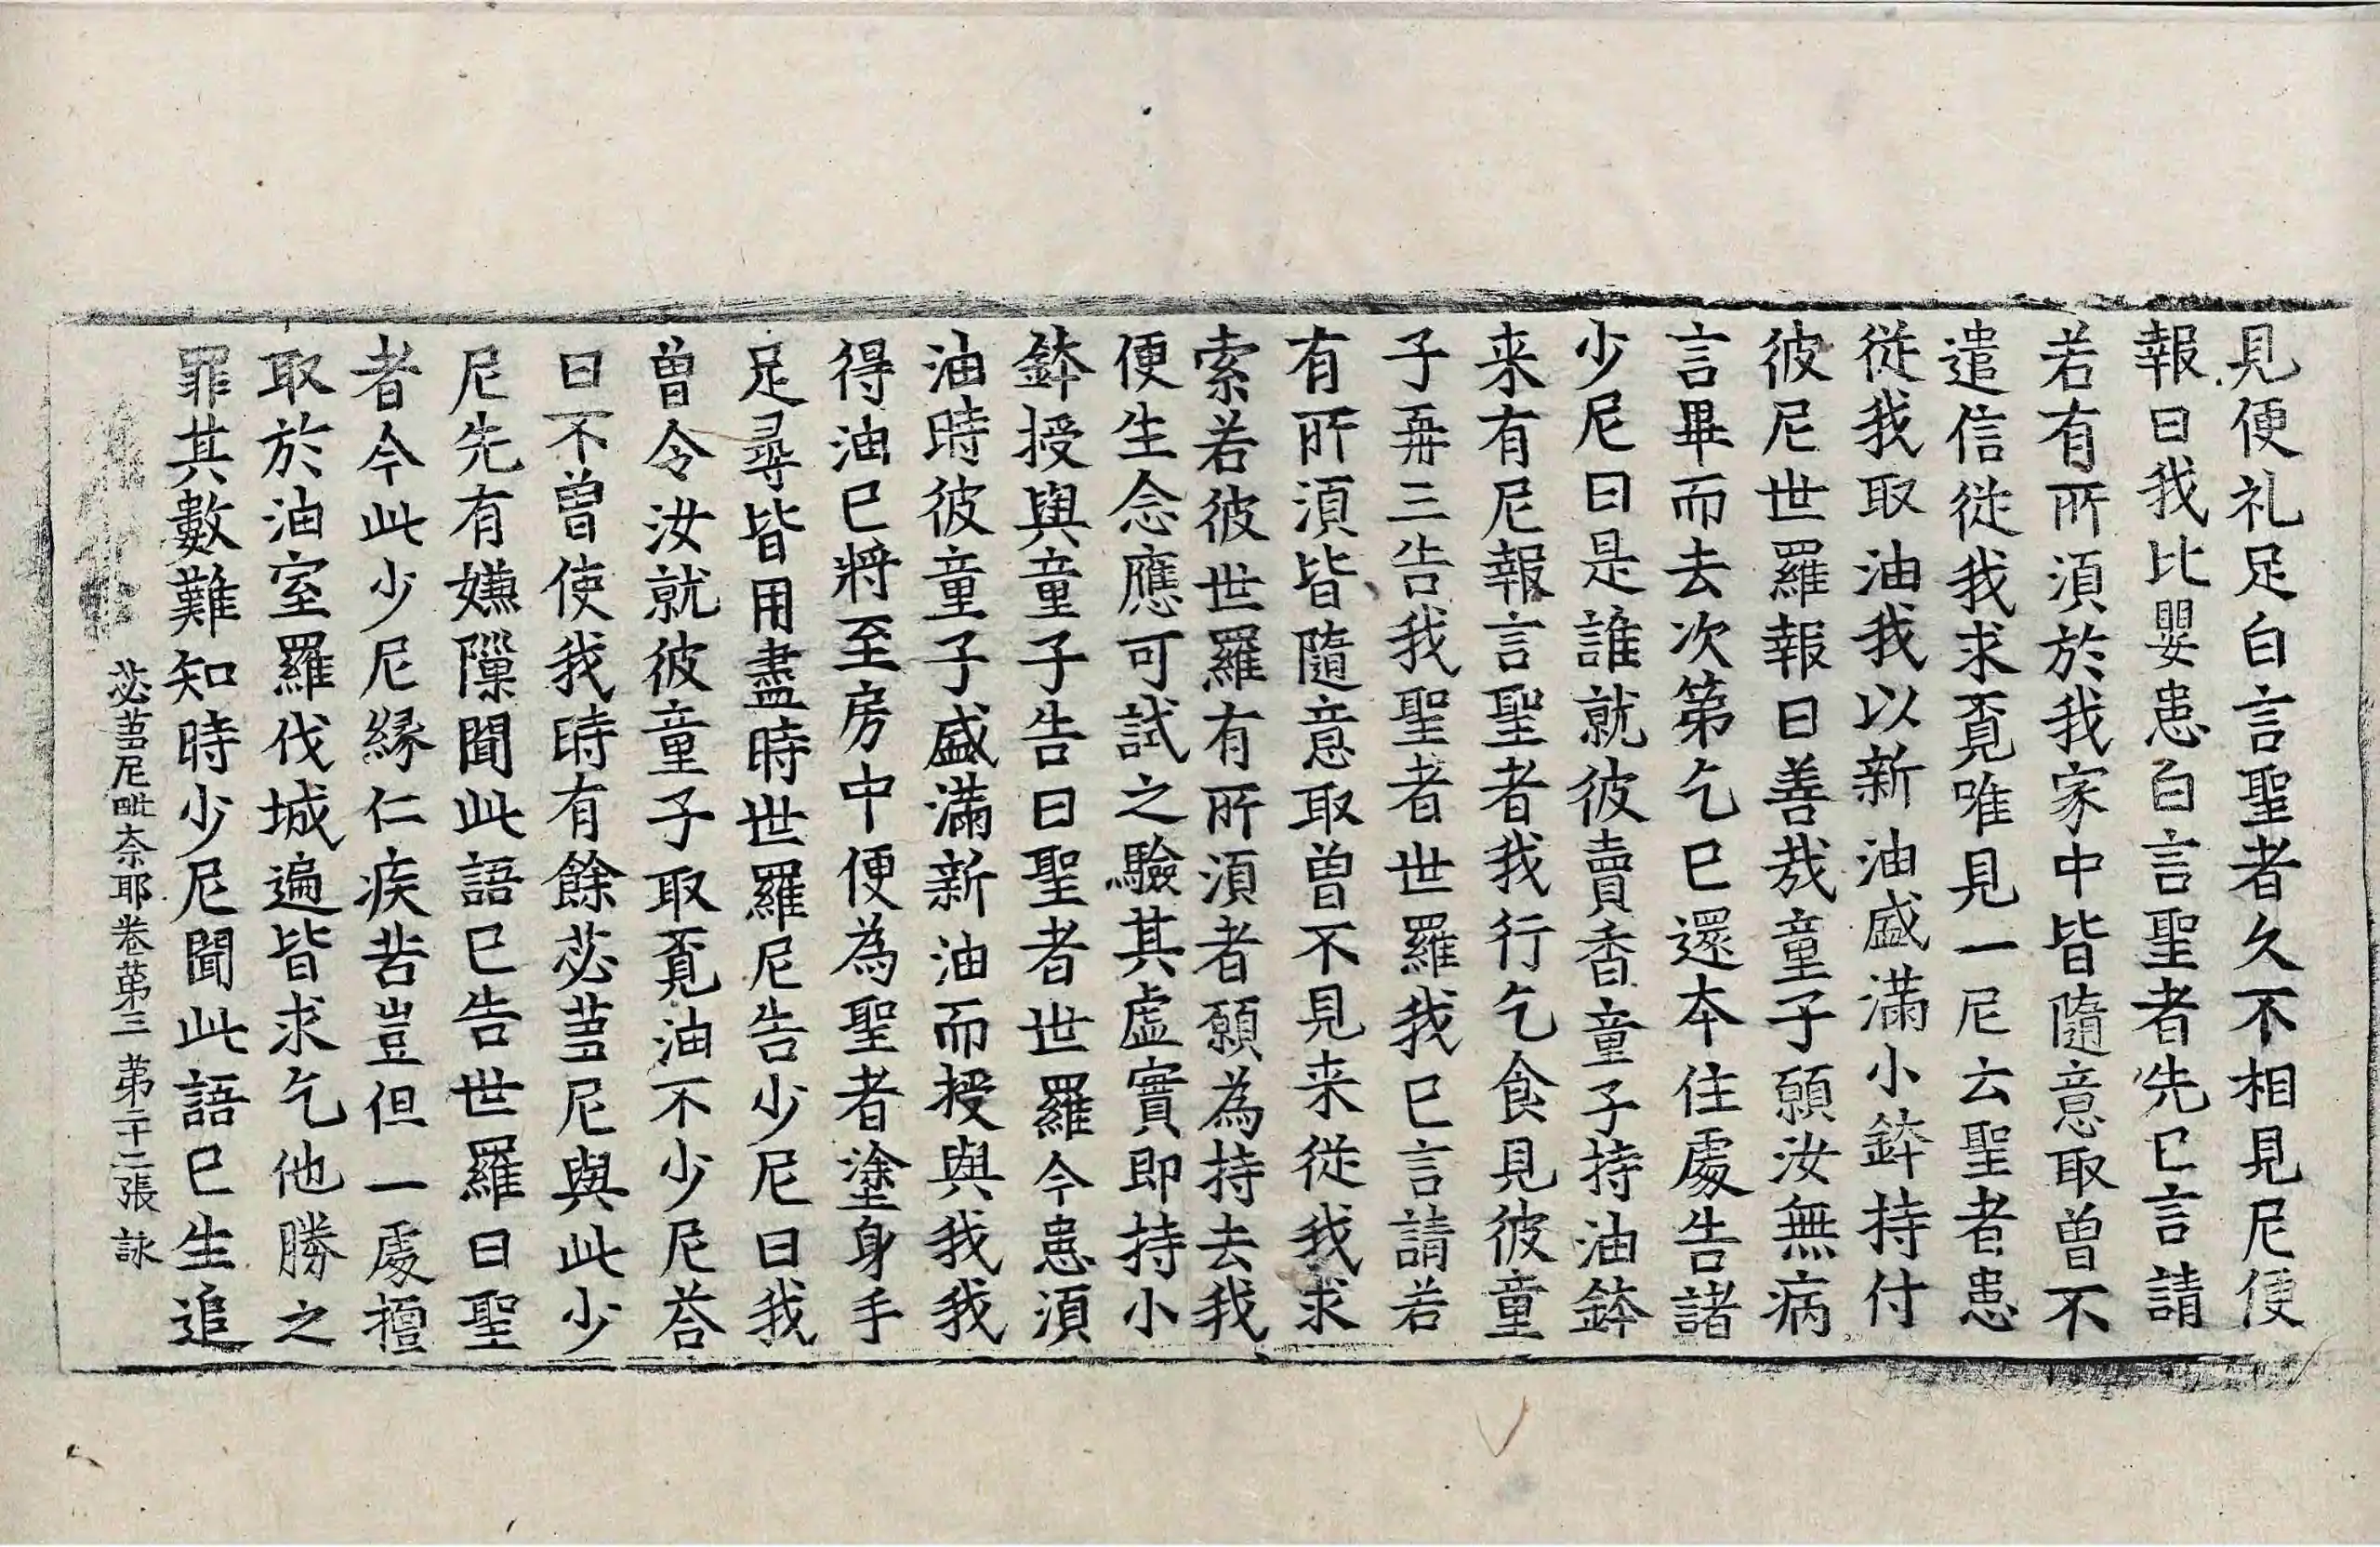 見便礼足白言聖者久不相見尼便
報曰我比嬰患白言聖者先已言請
若有所湏於我家中皆隨意取曾不
遣信從我求覔唯見一尼云聖者患
從我取油我以新油盛滿小鉢持付
彼尼世羅報曰善㢤童子願汝無病
言畢而去次第乞已還本住處告諸
少尼曰是誰就彼賣香童子持油鉢
来有尼報言聖者我行乞食見彼童
子再三告我聖者世羅我已言請若
有所湏皆隨意取曾不見来從我求
索若彼世羅有所湏者願為持去我
便生念應可試之驗其虛實即持小
鉢授與童子告曰聖者世羅今患湏
油時彼童子盛滿新油而授與我我
得油已將至房中便為聖者塗身手
足尋皆用盡時世羅尼告少尼曰我
曾令汝就彼童子取覔油不少尼荅
曰不曾使我時有餘苾芻尼與此少
尼先有嫌隟聞此語已告世羅曰聖
者今此少尼縁仁疾苦豈但一處擅
取於油室羅伐城遍皆求乞他勝之
罪其數難知時少尼聞此語已生追
苾芻尼毗奈耶卷第三 第二十二張 詠